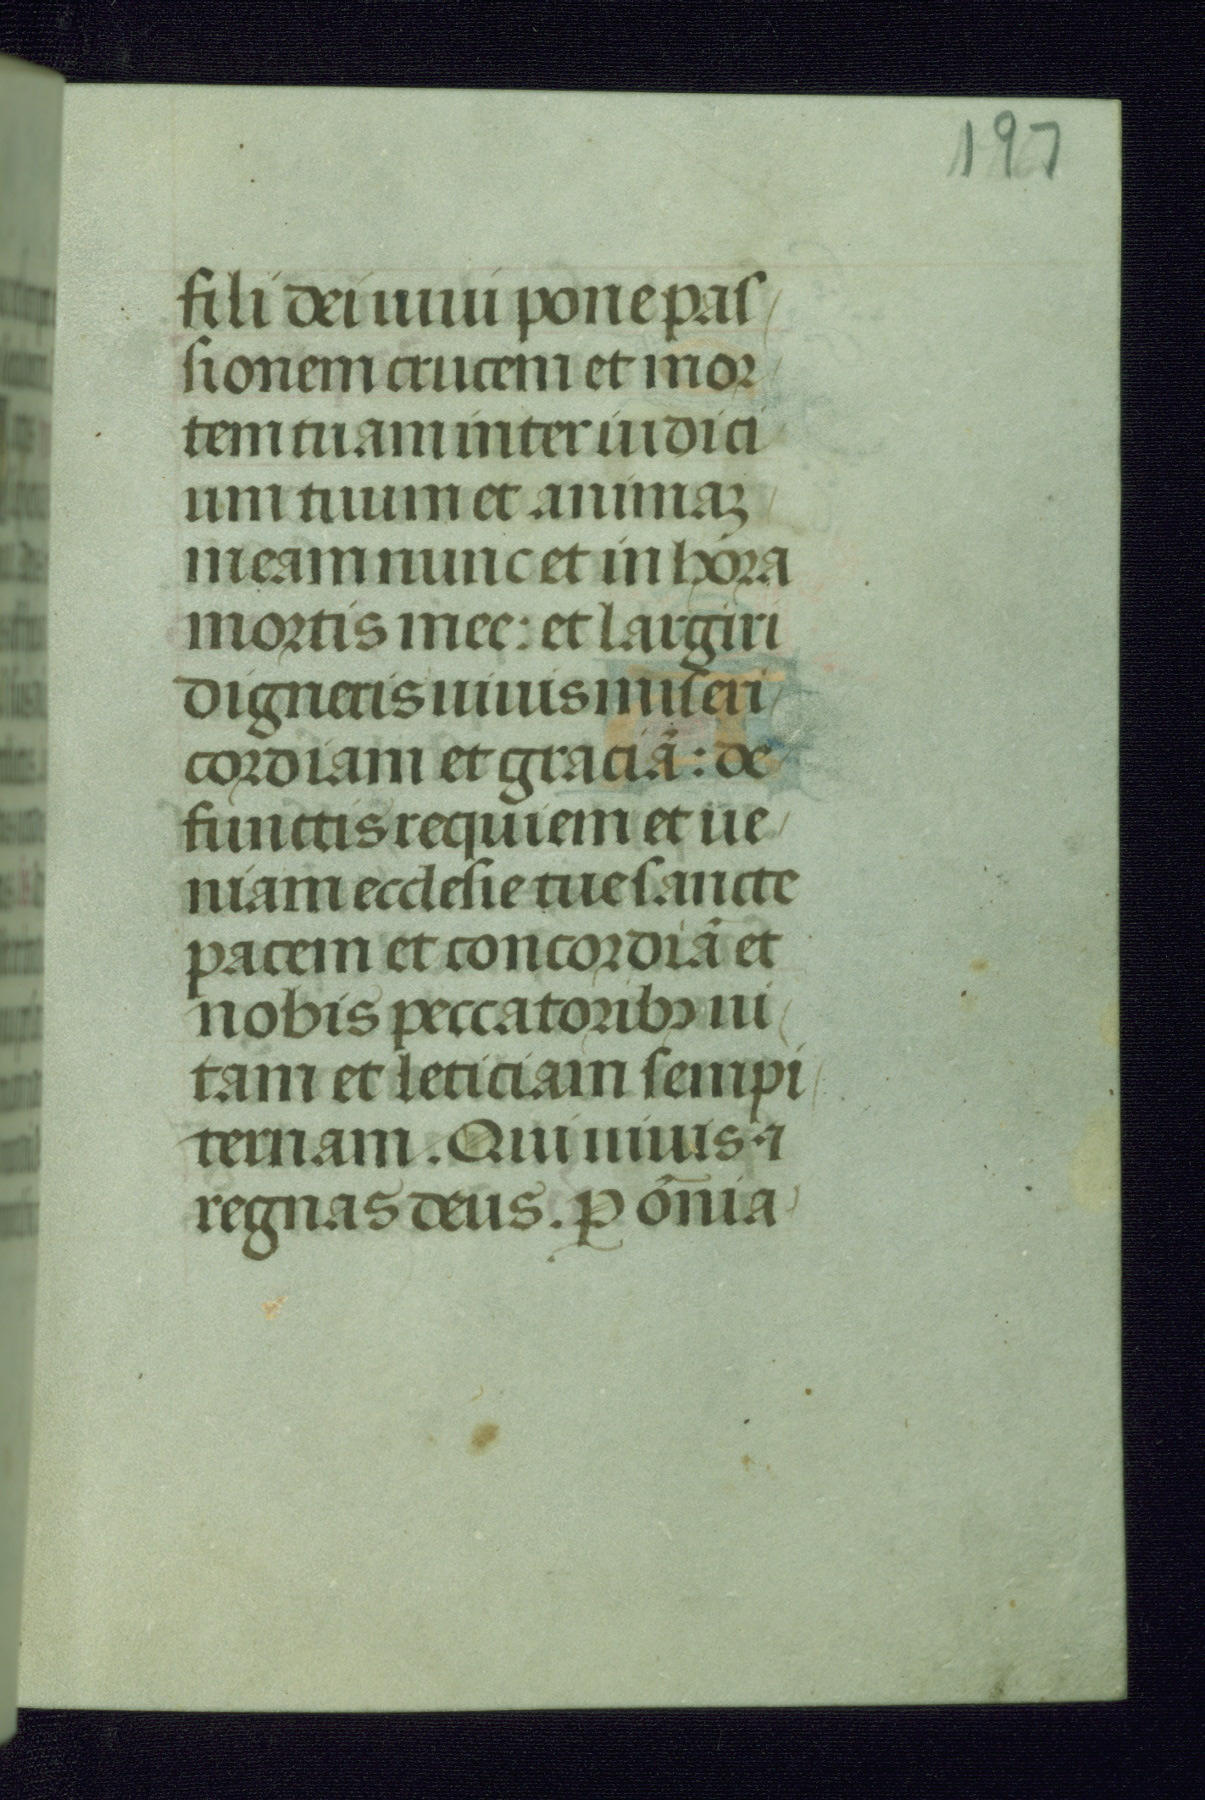 197
fili dei uiui pone pas
sionem crucem et mor
tem tuam inter iudici
um tuum et animaꝫ
meam nunc et in hora
mortis mee: et largiri
digneris uiuis miseri
cordiam et graciā: de
functis requiem et ue
niam ecclesie tue sancte
pacem et concordiā et
nobis peccatoribꝰ ui
tam et leticiam sempi
ternam. Qui uiuis ⁊
regnas deus. P̱ ōnia